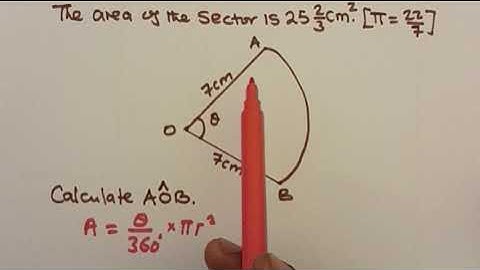 The area of the sector is 25 2/3 cm². [π = 22/7]
A
7cm
O θ
7cm
B
Calculate AÔB.
A = θ/360° × πr²